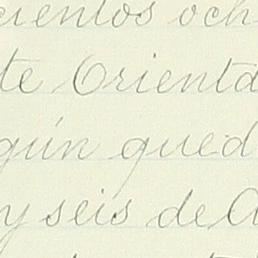 cientos och
te Orienta
gún qued
y seis de A